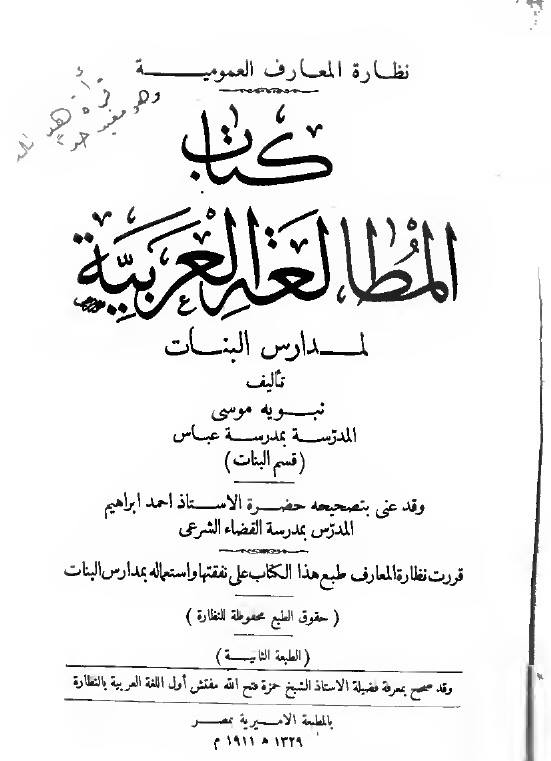 نظارة المعارف العمومية
قرأة هذ
وهو مفيد جداً
كتاب
المُطالعة العربيَّة
لمدارس البنات
تأليف
نبويه موسى
المدرّسة بمدرسة عباس
(قسم البنات)
وقد عنى بتصحيحه حضرة الاستاذ احمد ابراهيم
المدرّس بمدرسة القضاء الشرعى
قررت نظارة المعارف طبع هذا الكتاب على نفقتها واستعماله بمدارس البنات
(حقوق الطبع محفوظة للنظارة)
(الطبعة الثانية)
وقد صحح بمعرفة فضيلة الاستاذ الشيخ حمزة فتح الله مفتش أول اللغة العربية بالنظارة
بالمطبعة الاميرية بمصر
١٣٢٩ ه ١٩١١ م